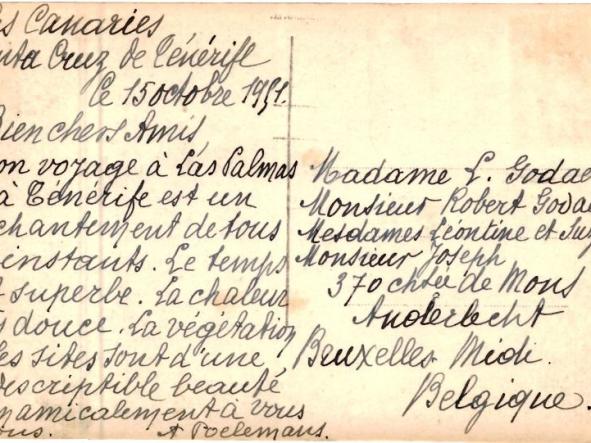 es Canaries
nta Cruz de Ténérife
le 15 octobre 1951.
Bien chers Amis
on voyage à Las Palmas
à Ténérife est un
chantement de tous
instants. Le temps
t superbe. La chaleur
s douce. La végétation
les sites sont d'une
descriptible beauté
namicalement à vous
ous. A Poelemans.
Madame L. Godae
Monsieur Robert Godae
Mesdames Léontine et Suz
Monsieur Joseph
370 chsée de Mons
Anderlecht
Bruxelles Midi.
Belgique.